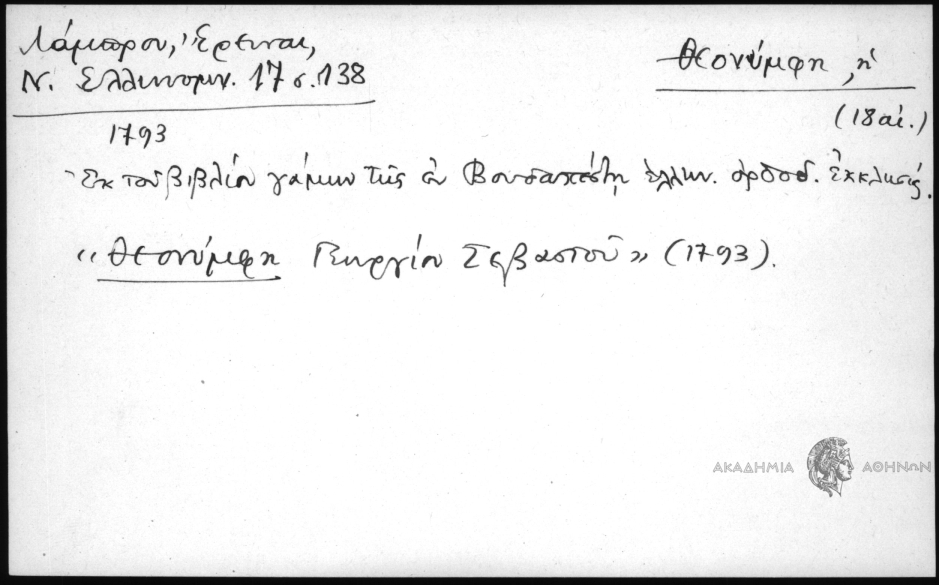 Λάμπρου, Ἔρευναι,
Ν. Ἑλληνομν. 17 σ. 138
θεονύμφη, ἡ
(18 αἰ.)
1793
Ἐκ τοῦ βιβλίου γάμων τῆς ἐν Βουδαπέστη ἑλλην. ὀρθοδ. ἐκκλησίας.
«θεονύμφη Γεωργίου Σεβαστοῦ» (1793).
ΑΚΑΔΗΜΙΑ ΑΘΗΝΩΝ